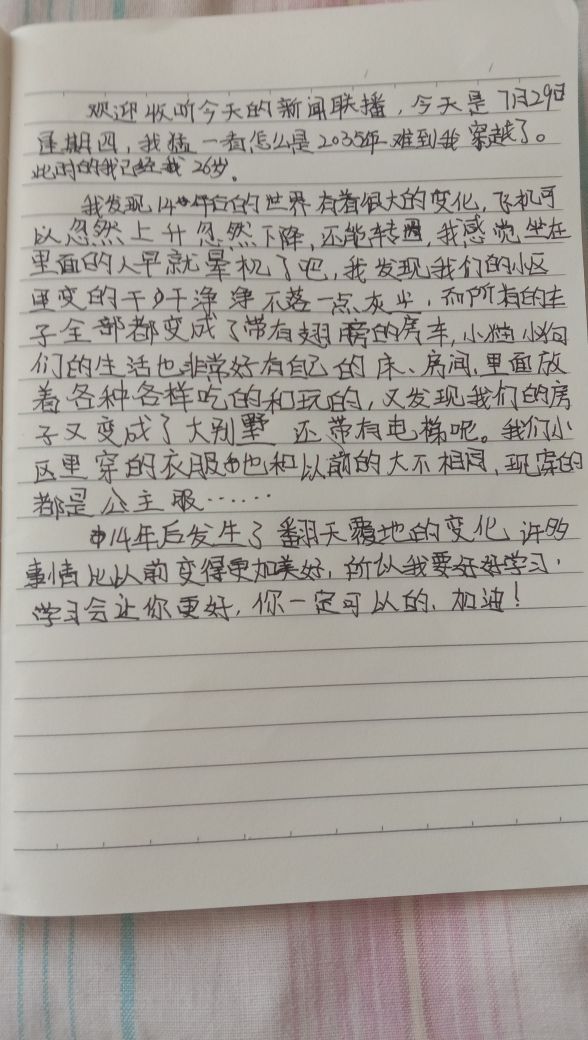 欢迎收听今天的新闻联播，今天是7月29日
星期四，我猛一看怎么是2035年难到我穿越了。
此时的我已经我26岁。
我发现14年后的世界有着很大的变化，飞机可
以忽然上升忽然下降，还能转圈，我感觉坐在
里面的人早就晕机了吧，我发现我们的小区
里变的干干净净不落一点灰尘，而所有的车
子全部都变成了带有翅膀的房车，小猫小狗
们的生活也非常好有自己的床、房间，里面放
着各种各样吃的和玩的，又发现我们的房
子又变成了大别墅 还带有电梯呢。我们小
区里穿的衣服也和以前的大不相同，现穿的
都是公主服……
14年后发生了翻天覆地的变化 许多
事情比以前变得更加美好，所以我要好好学习，
学习会让你更好，你一定可以的，加油！